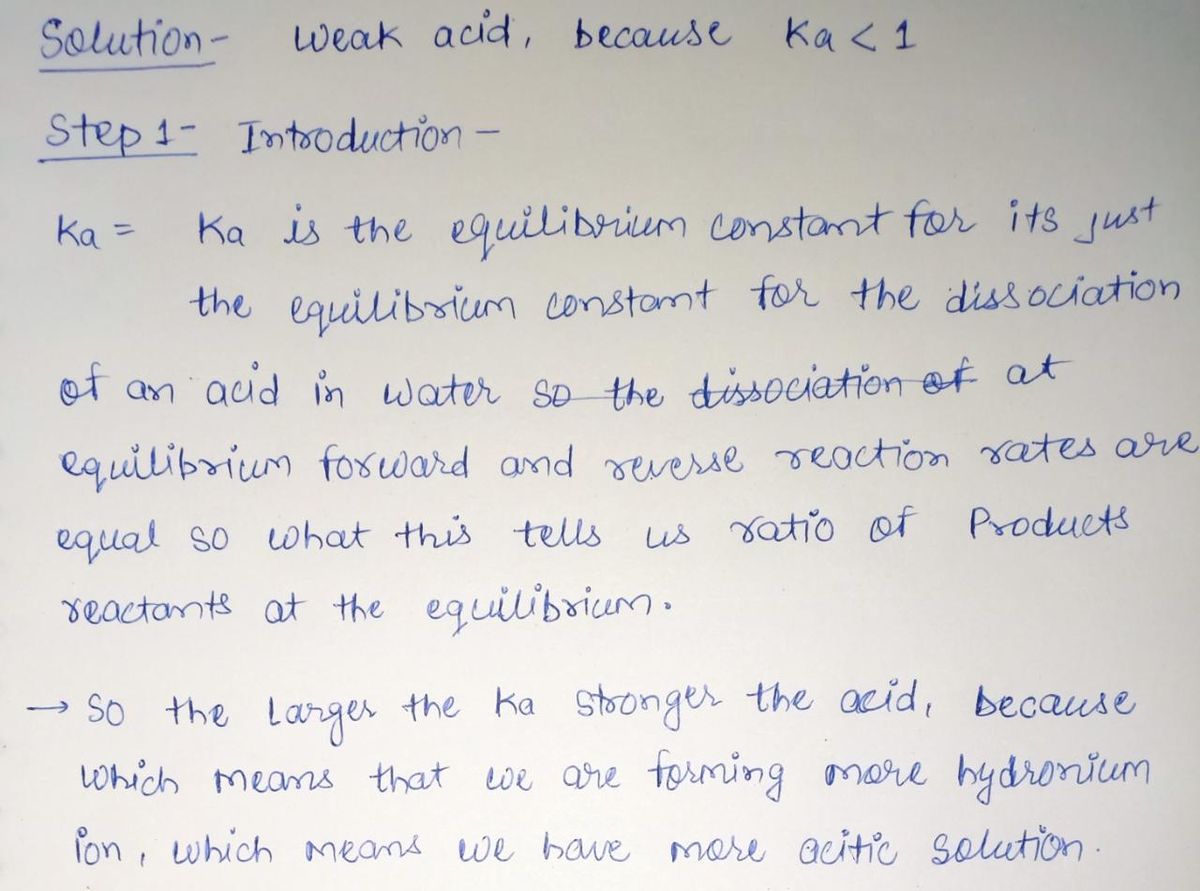 Solution- weak acid, because Ka < 1
Step 1- Introduction -
Ka = Ka is the equilibrium constant for its just
the equilibrium constant for the dissociation
of an acid in water so the dissociation of at
equilibrium forward and reverse reaction rates are
equal so what this tells us ratio of Products
reactants at the equilibrium.
→ So the Larger the Ka stronger the acid, because
which means that we are forming more hydronium
ion, which means we have more acitic solution.